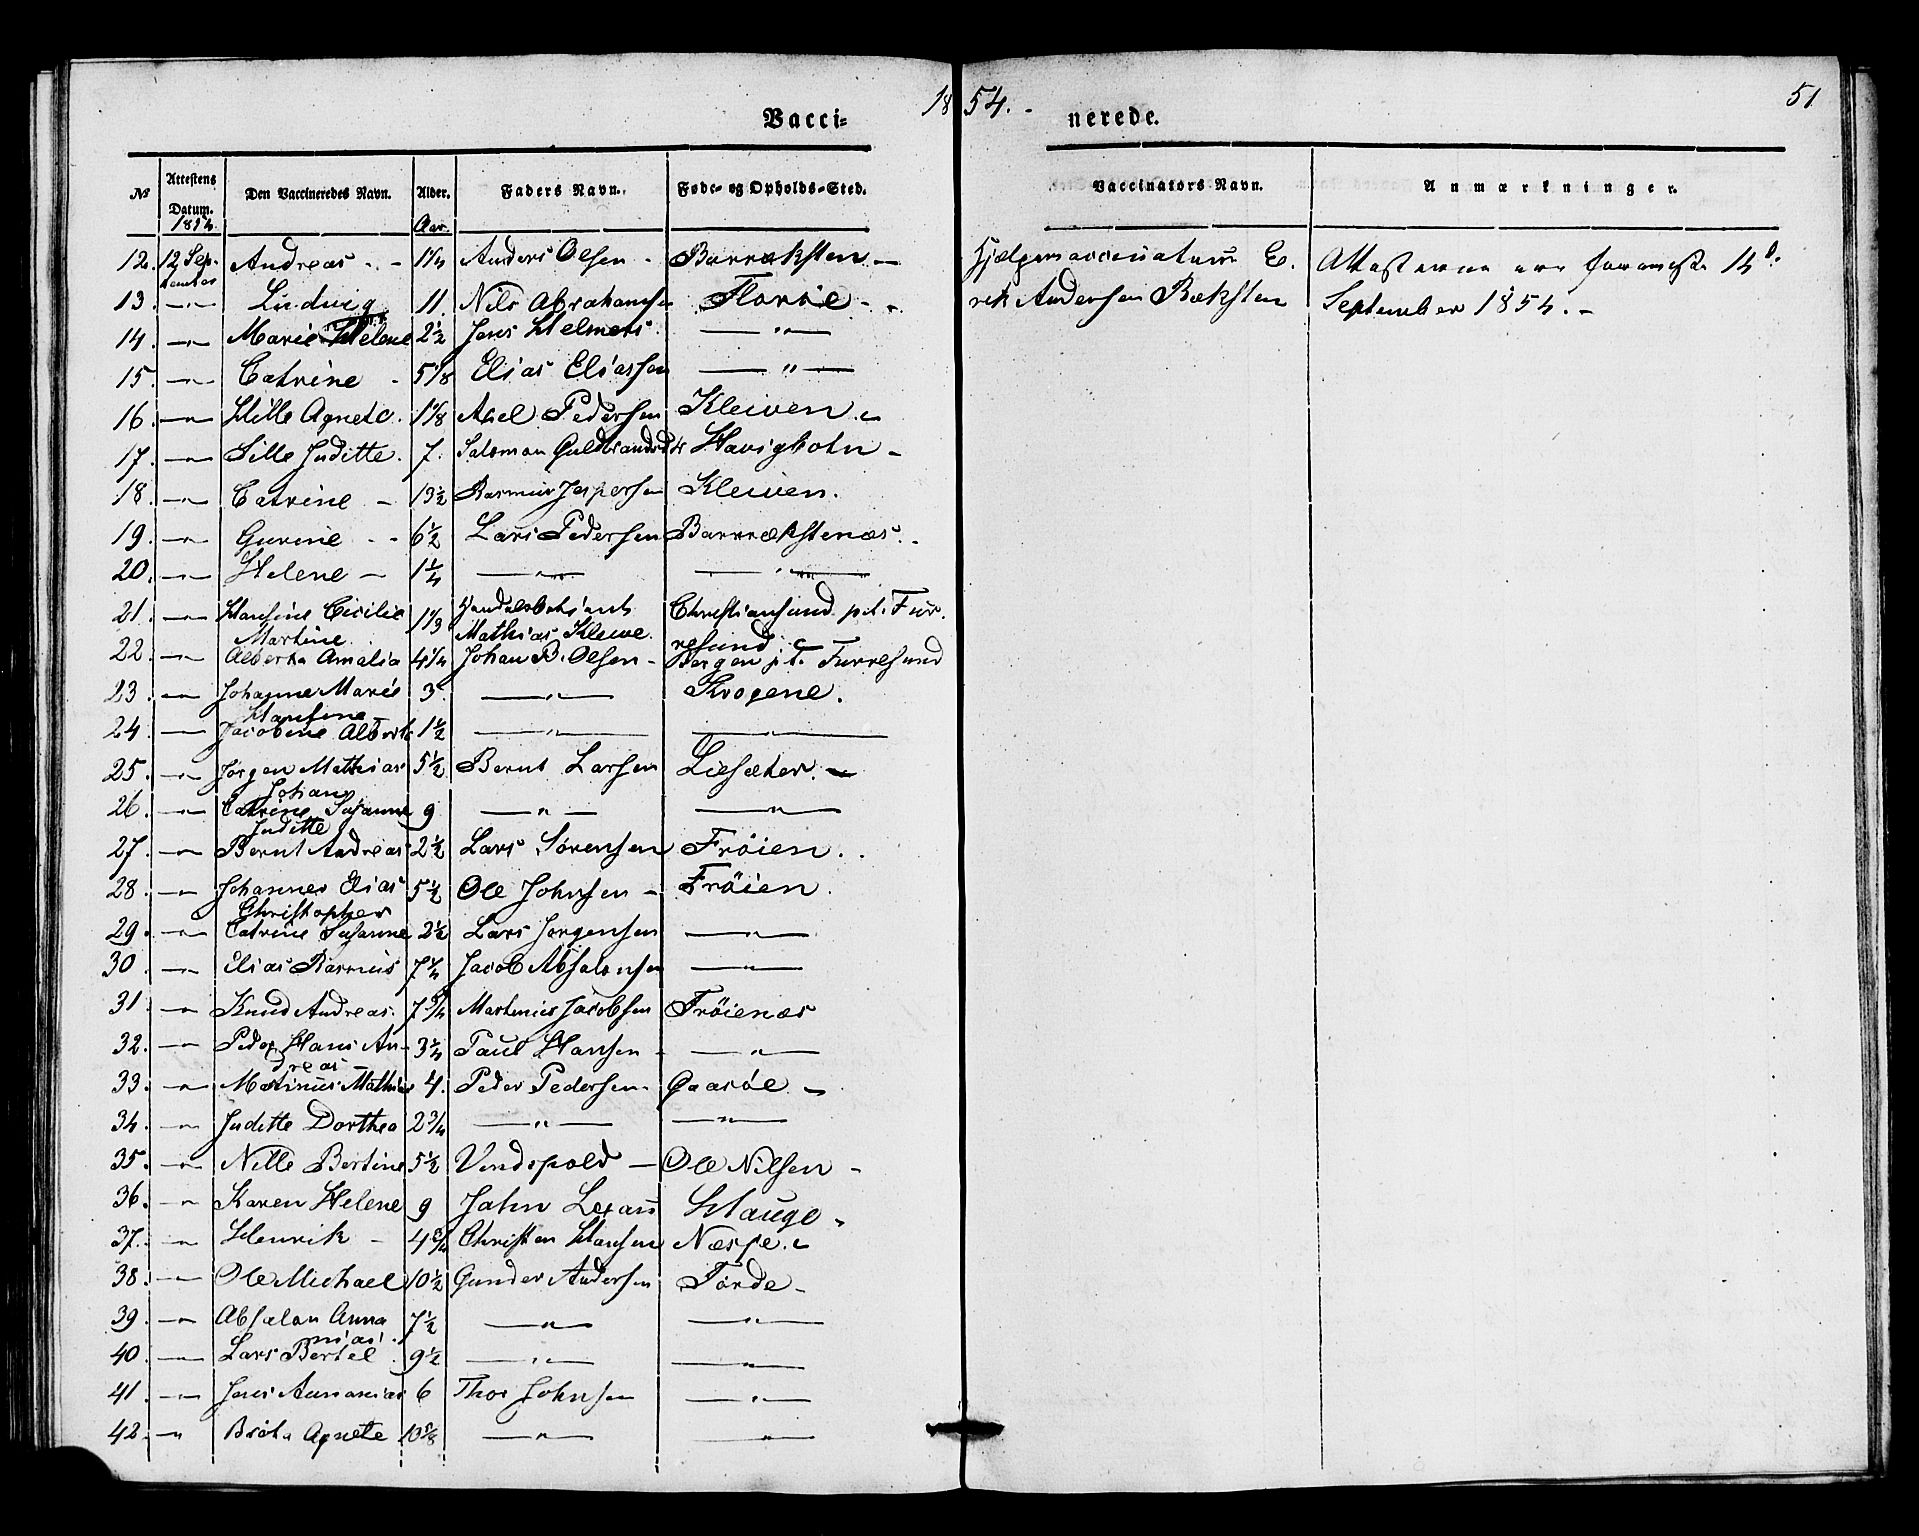 1854. 51
Vacci- nerede.
No Attestens Datum. Den Vaccineredes Navn. Alder. Faders Navn. Føde- og Opholds-Sted. Vaccinators Navn. Anmærkninger.
1854. Aar.
12. 12 Sep- Andreas - 1 1/4 Anders Olsen - Barræksten - Hjelpevaccinateur E. Attesterne ere foreviste 14d.
tember
13. -"- Ludvig 11. Nils Abrahamsen Florøe - rik Andersen Ræksten September 1854. -
14. -"- Marie Helene 2 1/2 Jens Helmers -"-
15. -"- Catrine - 5 1/8 Elias Eliassen -"-
16. -"- Hille Agnete. 1 1/8 Abel Pedersen Kleiven. -
17. -"- Sille Juditte. 7. Salomon Guldbrands Havigbotn -
18. -"- Catrine - 13 1/2 Rasmus Jespersen Kleiven.
19. -"- Gurine - 6 1/2 Lars Pedersen Barrækstenæs. -
20. -"- Helene - 1 1/4 -"- -"-
21. -"- Hansine Cicilie 1 1/3 Handelsbetjent Christiansund p.t. Fur-
Martine Mathias Kleive. resund
22. -"- Alberta Amalia 4 1/4 Johan B. Olsen - Bergen p.t. Furresund
23. -"- Johanne Marie 3. -"- Krogene.
Hansine
24. - Jacobine Alberte 1 1/2 -"- -"-
25. -"- Jørgen Mathias 5 1/2 Bernt Larsen Liesæter. -
Johan
26. -"- Catrine Susanne 9 -"- -"-
Juditte
27. -"- Bernt Andreas 2 1/2 Lars Sørensen Frøien.
28. -"- Johannes Elias 5 1/2 Ole Johnsen - Frøien.
Christopher
29. -"- Catrine Susanne 2 1/2 Lars Jørgensen -"-
30. -"- Elias Rasmus 7 1/4 Jacob Absalonsen -"-
31. -"- Knud Andreas. 7 3/4 Martinus Jacobsen Frøienæs
32. -"- Peder Hans An- 3 1/4 Paul Hansen - -"-
dreas -
33. -"- Martinus Mathias 4. Peder Pedersen. Gaasøe -
34. -"- Juditte Dorthea 2 3/4 -"- -"-
35. -"- Nille Bertine 5 1/2 Vindspold - Ole Nilsen -
36. -"- Karen Helene 9 Jahn Lexau Hauge -
37. -"- Henrik - 4 3/4 Christen Hansen Næsse. -
38. -"- Ole Michael 10 1/2 Gunder Andersen Førde -
39. -"- Absalon Anna 7 1/2 -"- -"-
nias.
40. - Lars Bertel. 9 1/2 -"- -"-
41. -"- Jens Annanias 6 Thor Johnsen -"-
42. -"- Agnete 10 5/8 -"- -"-